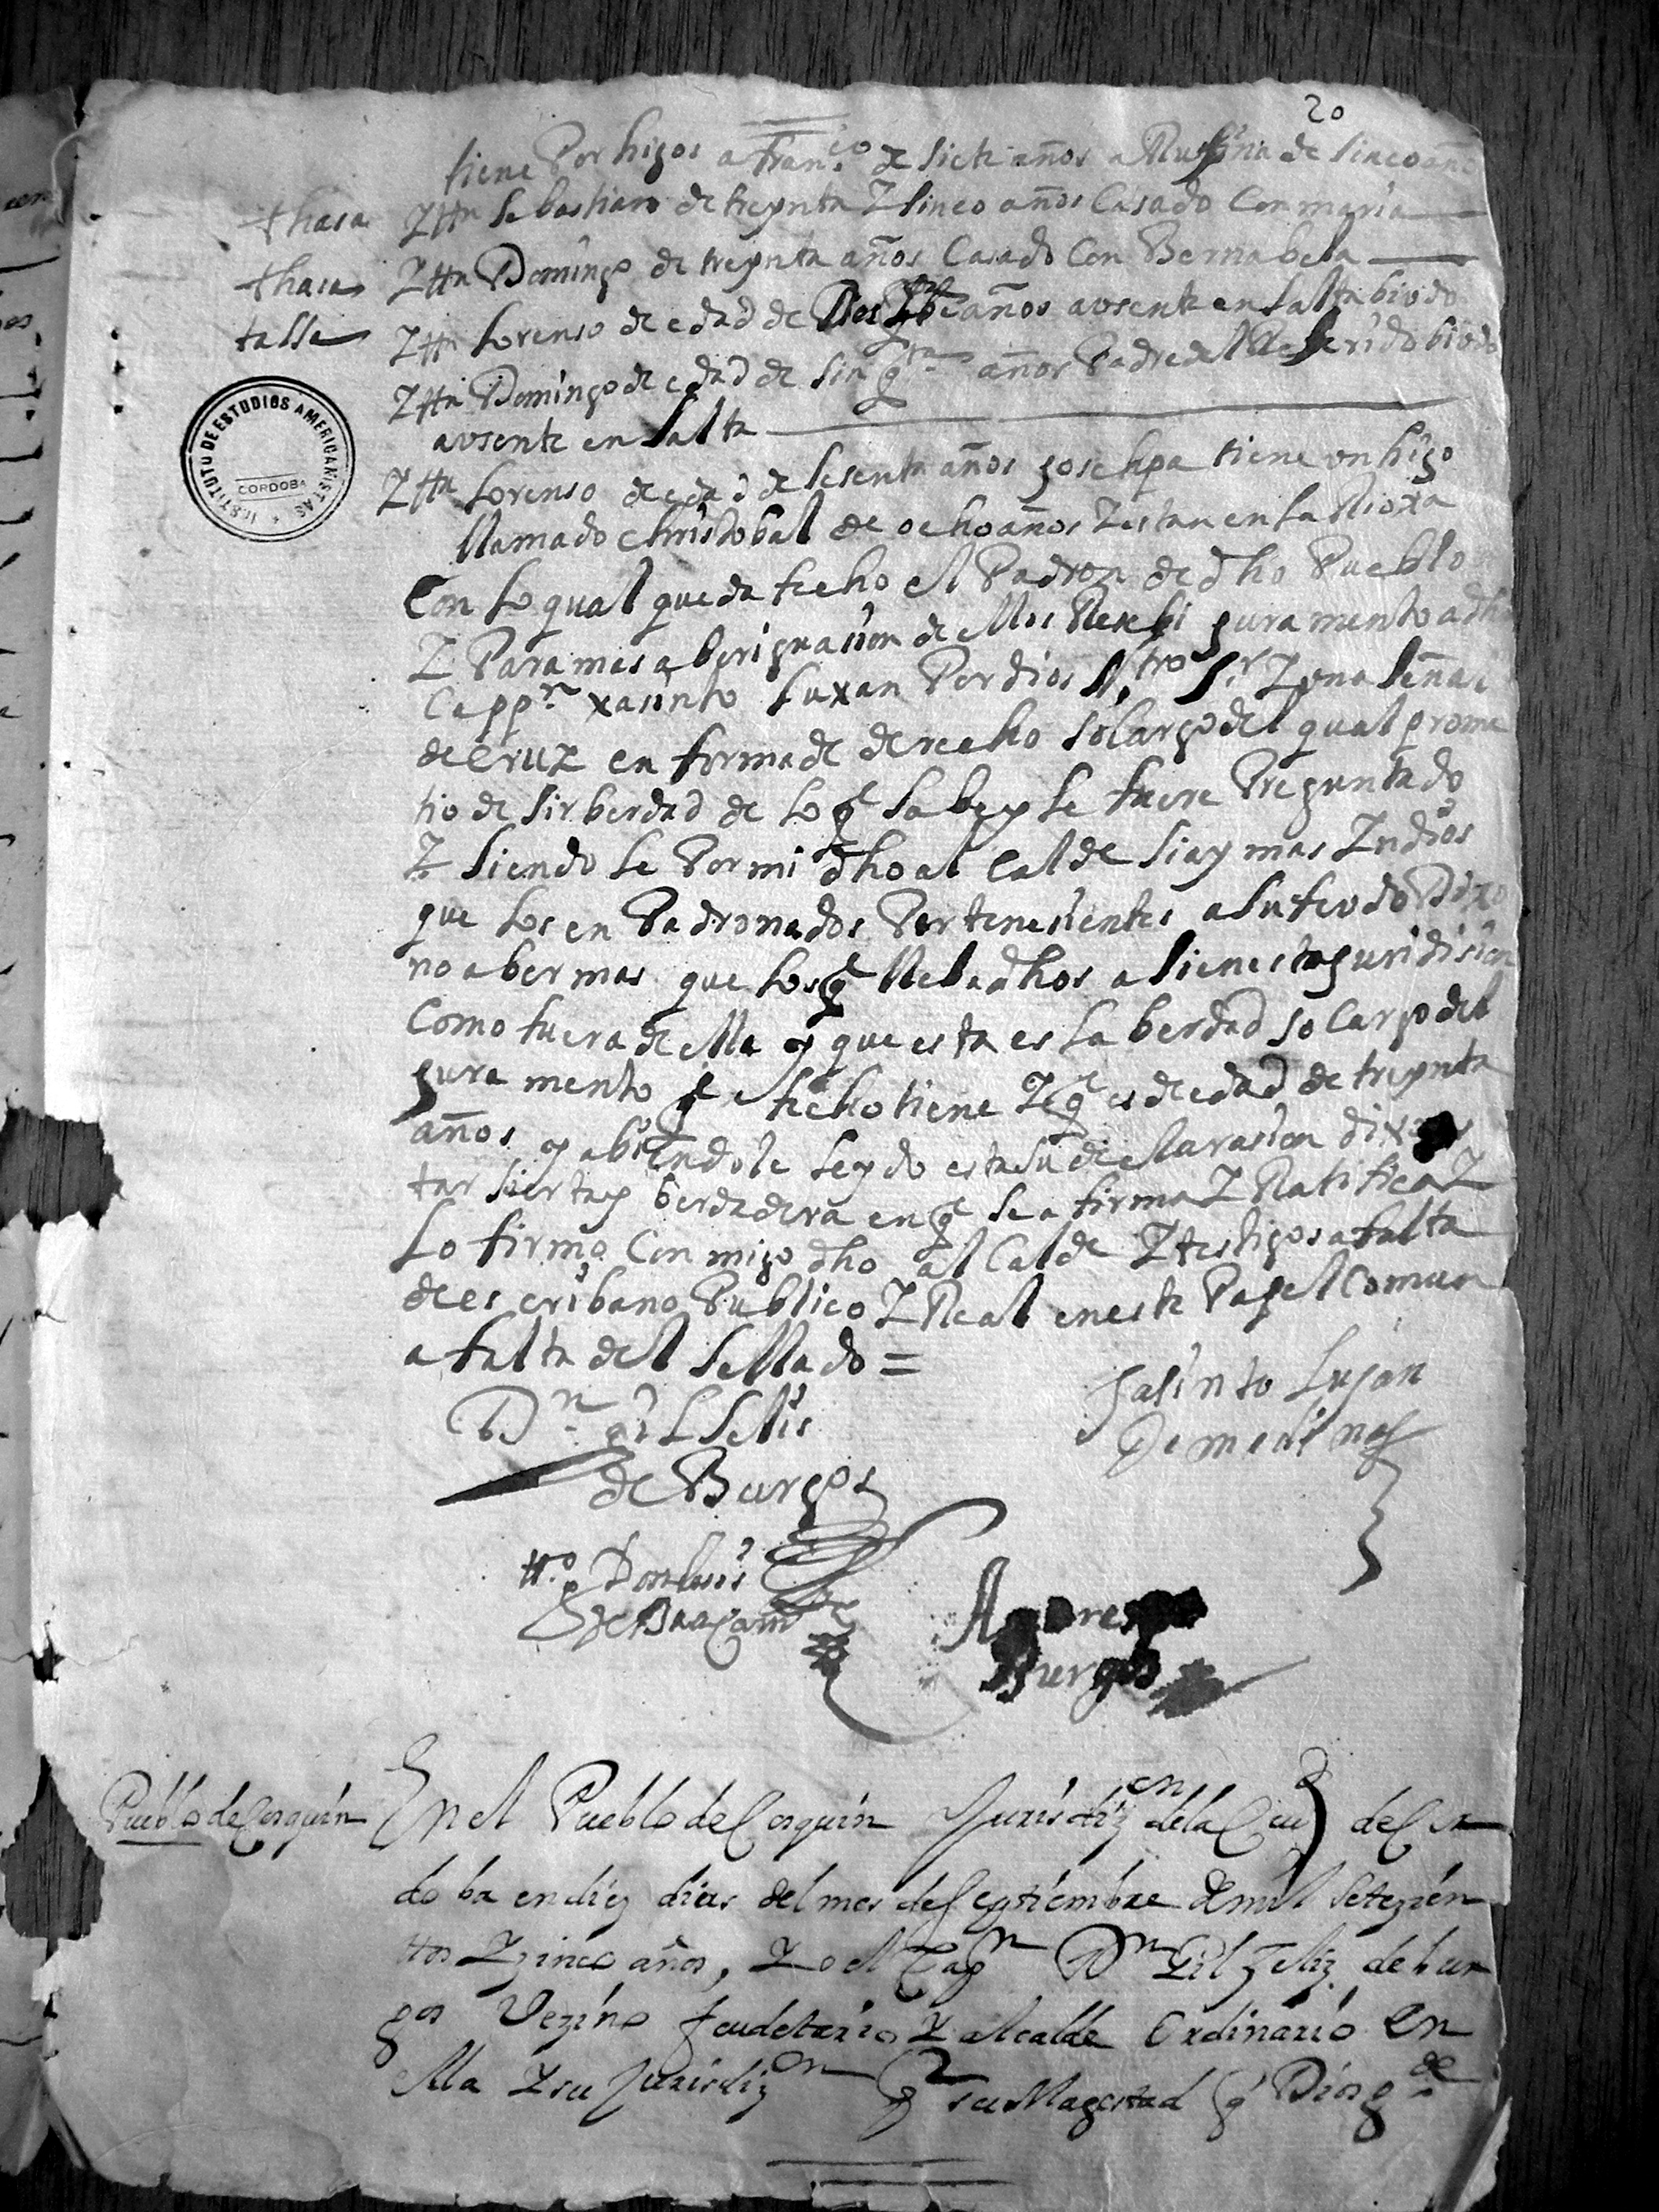 20
tiene Por hijos a Fran.co de siete años a Rufina de sinco años
thasa Ittn Sebastian de treynta Y sinco años Casado Con maria
thasa Ittn Domingo de treynta años Casado Con Bernabela
tassa Ittn Lorenso de edad de años ausente en Salta biudo
Ittn Domingo de edad de sinq.ta años Padre del Referido biudo
ausente en Salta
Ittn Lorenso de edad de sesenta años Josehpa tiene un hijo
llamado Christobal de ocho años Y estan en La Rioxa
Con Lo qual queda fecho el Padron de dho Pueblo
Y Para mas aberiguasion de ellos Resebi juramento a dho
Capp.n xasinto Luxan Por dios N.tro S.r Y una señal
de Cruz en forma de derecho so Cargo del qual prome
tio desir berdad de Lo q̃ sabe y le fuere Preguntado
Y siendole Por mi dho alCalde si ay mas Yndios
que Los enPadronados Pertenesientes a su feudo Dixo
no aber mas que Los q̃ lleba dhos asi en esta juridision
Como fuera de ella y que esta es La berdad so Cargo del
juramento q̃ fecho tiene Y q̃ es de edad de treynta
años y abiendole Leydo esta su declarasion dixo es
tar sierta y berdadera en q̃ se afirma Y Ratifica Y
Lo firmo Conmigo dho alCalde Y testigos a falta
de escribano Publico Y Real en este Papel Comun
a falta del sellado =
D.n gil Selis
de Burgos
Jasinto Lujan
De medina
tt.o Don Luis
de Bracam.te
Andres de
Burgos
INSTITUTO DE ESTUDIOS AMERICANISTAS
CORDOBA
Pueblo de Cosquin En el Pueblo de Cosquin Jurisdiz.en de la Ciu.d de Cor
doba en diez dias del mes de Septiembre de mil setezien
ttos Y zinco años, Yo el Cap.n D.n Gil Zeliz de bur
gos Vezino feudetario Y alcalde Ordinario en
ella Y su Jurisdiz.on p.r su Magestad q̃ Dios g.de